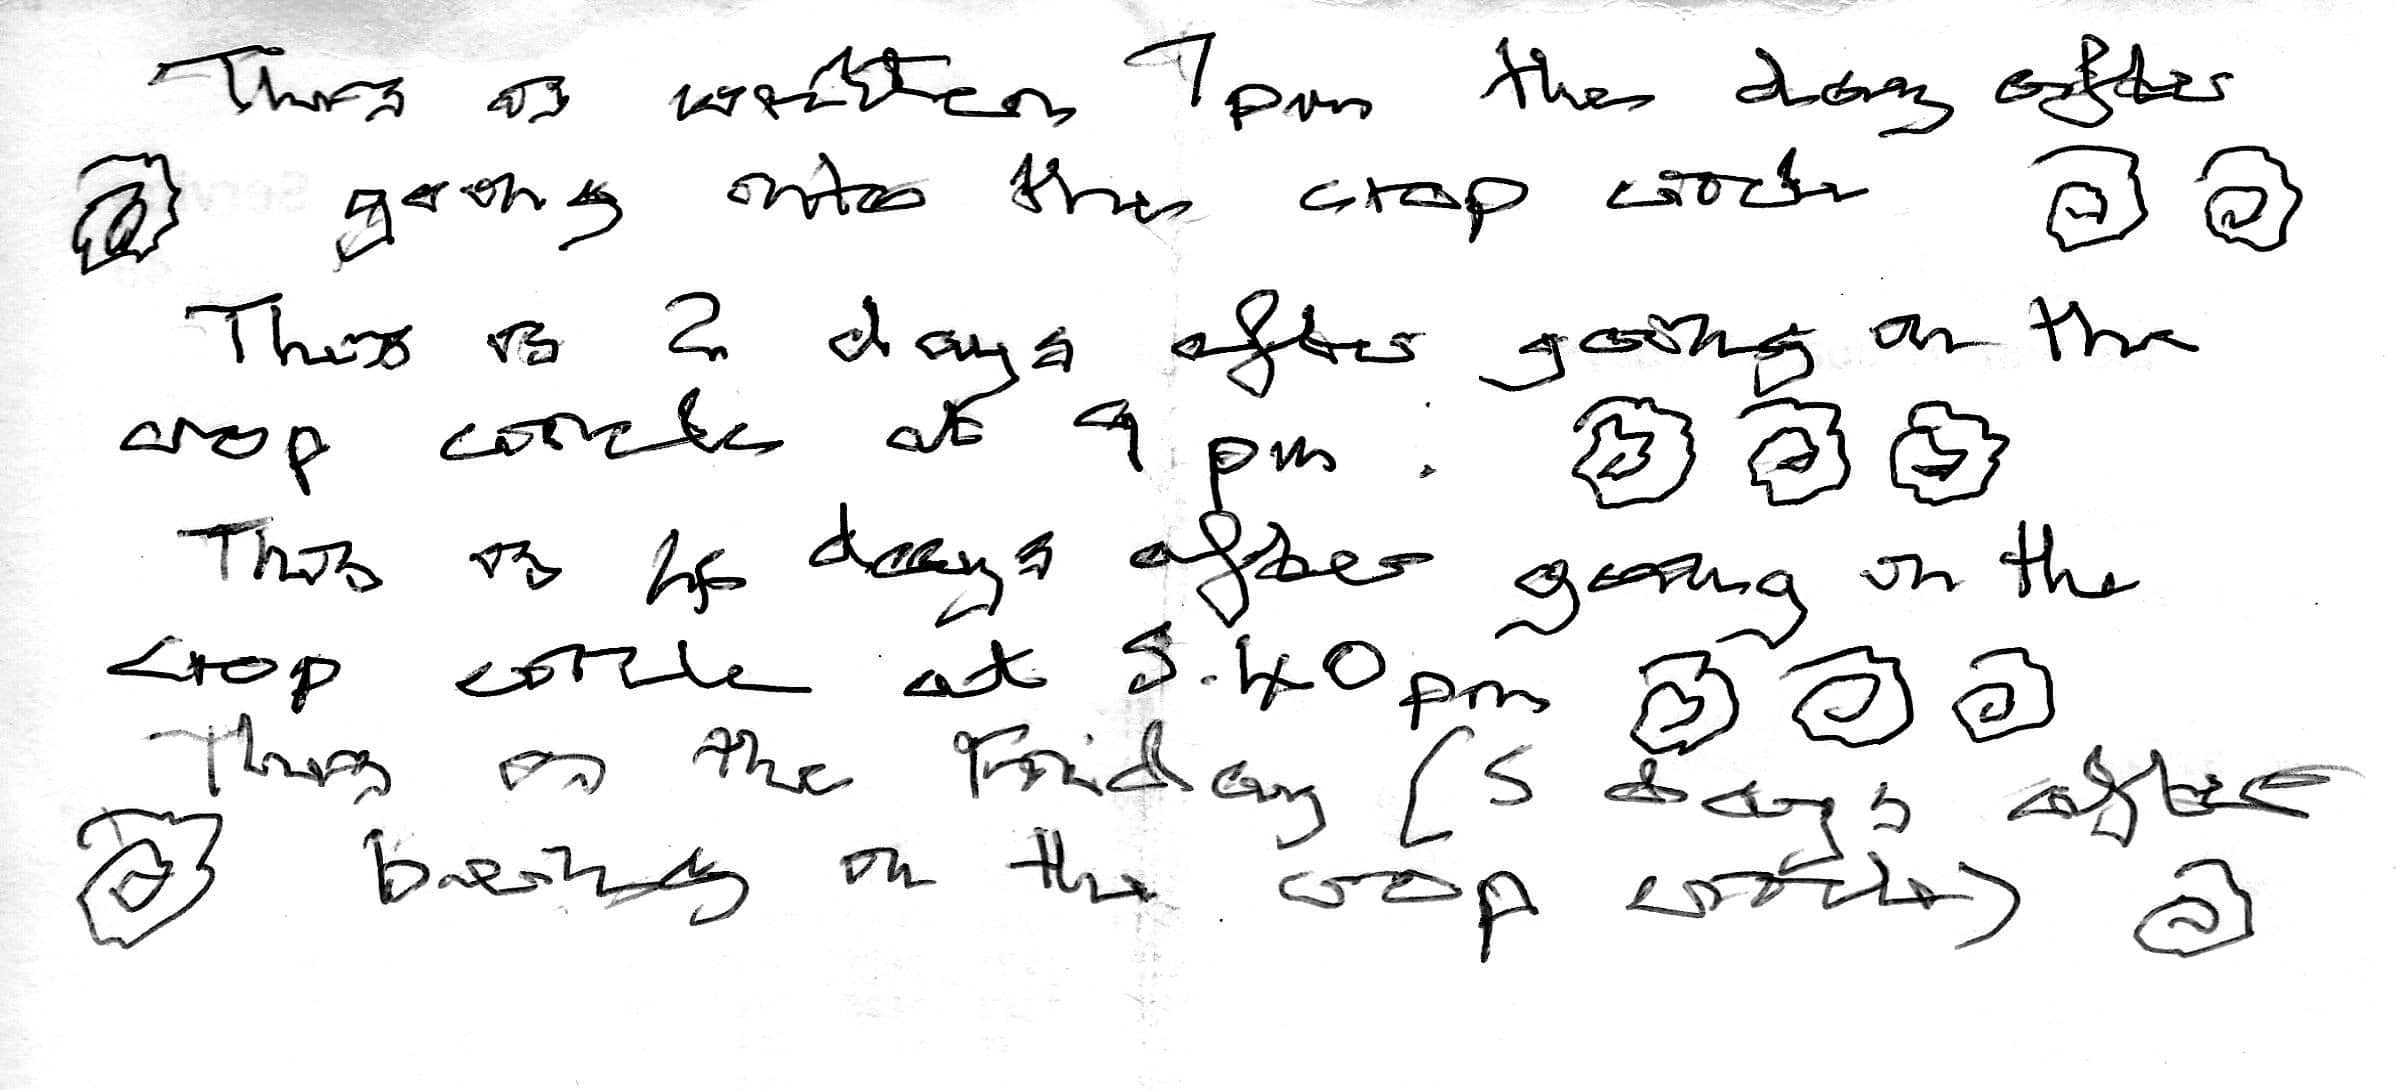 This is written 7 pm the day after
going into the crop circle
This is 2 days after going in the
crop circle at 9 pm.
This is 4 days after going in the
crop circle at 5.40 pm
This is the Friday (5 days after
being in the crop circle)